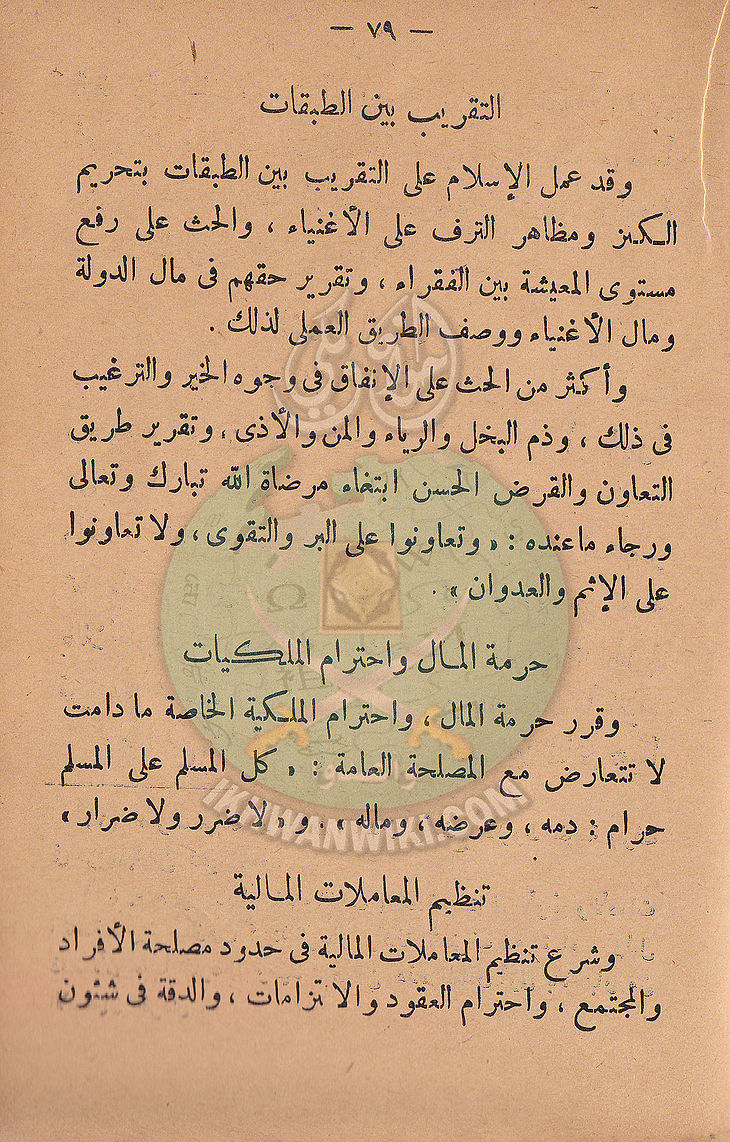 — ٧٩ —
التقريب بين الطبقات
وقد عمل الإسلام على التقريب بين الطبقات بتحريم
الكنز ومظاهر الترف على الأغنياء ، والحث على رفع
مستوى المعيشة بين الفقراء ، وتقرير حقهم فى مال الدولة
ومال الأغنياء ووصف الطريق العملى لذلك .
وأكثر من الحث على الإنفاق فى وجوه الخير والترغيب
فى ذلك ، وذم البخل والرياء والمن والأذى ، وتقرير طريق
التعاون والقرض الحسن ابتغاء مرضاة الله تبارك وتعالى
ورجاء ما عنده : « وتعاونوا على البر والتقوى ، ولا تعاونوا
على الإثم والعدوان » .
حرمة المال واحترام الملكيات
وقرر حرمة المال ، واحترام الملكية الخاصة ما دامت
لا تتعارض مع المصلحة العامة : « كل المسلم على المسلم
حرام : دمه ، وعرضه ، وماله » . و « لا ضرر ولا ضرار »
تنظيم المعاملات المالية
وشرع تنظيم المعاملات المالية فى حدود مصلحة الأفراد
والمجتمع ، واحترام العقود والالتزامات ، والدقة فى شئون
IKHWANWIKI.COM